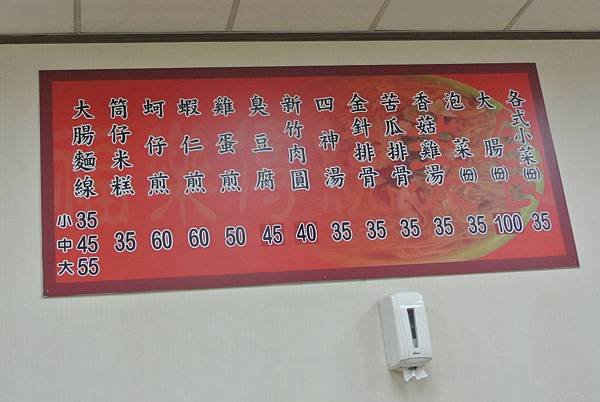 大腸麵線 小35 中45 大55
筒仔米糕 35
蚵仔煎 60
蝦仁煎 60
雞蛋煎 50
臭豆腐 45
新竹肉圓 40
四神湯 35
金針排骨 35
苦瓜排骨 35
香菇雞湯 35
泡菜(份) 35
大腸(份) 100
各式小菜(份) 35